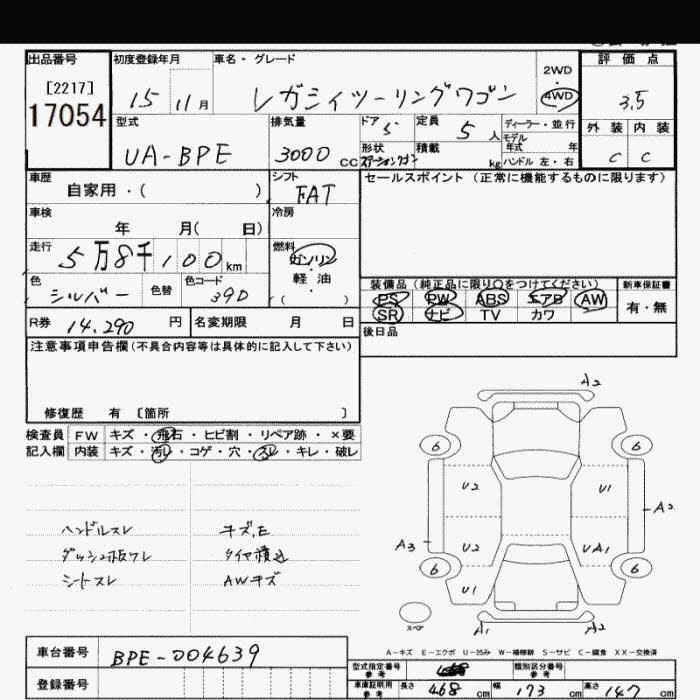 出品番号 初度登録年月 車名・グレード 評価点
[2217]
17054
15 11月 レガシィツーリングワゴン 2WD 4WD 3.5
型式 排気量 ドア 5 定員 5人 ディーラー・並行 外装 内装
UA-BPE 3000cc 形状 ステーションワゴン 積載 kg モデル年式 年 ハンドル 左・右 C C
車歴 シフト セールスポイント (正常に機能するものに限ります)
自家用・( ) FAT
車検 冷房
年 月( 日)
走行 燃料
5万8千100km ガソリン・軽油
色 色替 色コード ( )
シルバー 39D
装備品 (純正品に限り○をつけてください) 新車保証書
PS PW ABS エアB AW 有・無
SR ナビ TV カワ
R券 14,290円 名変期限 月 日
後日品
注意事項申告欄(不具合内容等は具体的に記入して下さい)
修復歴 有 [箇所 ]
検査員 FW キズ・飛石・ヒビ割・リペア跡・×要
記入欄 内装 キズ・汚レ・コゲ・穴・スレ・キレ・破レ
ハンドルスレ キズ,E
ダッシュ板ワレ タイヤ積込
シートスレ AWキズ
A2
6 6
U2 U1
A2
A3 U2 UA1
6 6
U1
スペア
A1 A2
A-キズ E-エクボ U-凹み W-補修跡 S-サビ C-腐食 XX-交換済
車台番号 BPE-004639
登録番号
型式指定番号 参考 類別区分番号 参考
車庫証明用 参考 長さ 468cm 幅 173cm 高さ 147cm